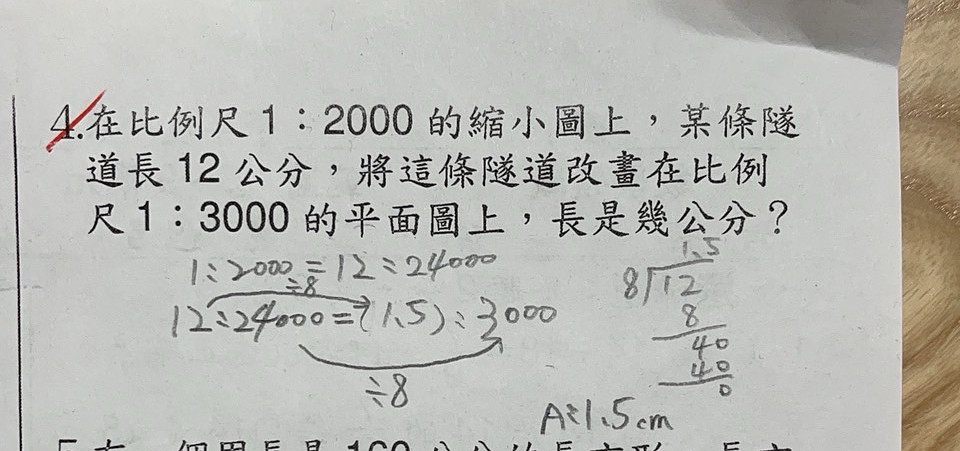 4.在比例尺1：2000的縮小圖上，某條隧
道長12公分，將這條隧道改畫在比例
尺1：3000的平面圖上，長是幾公分？
1:2000=12:24000
÷8
12:24000=(1.5):3000
÷8
1.5
8)12
8
40
40
0
A:1.5cm